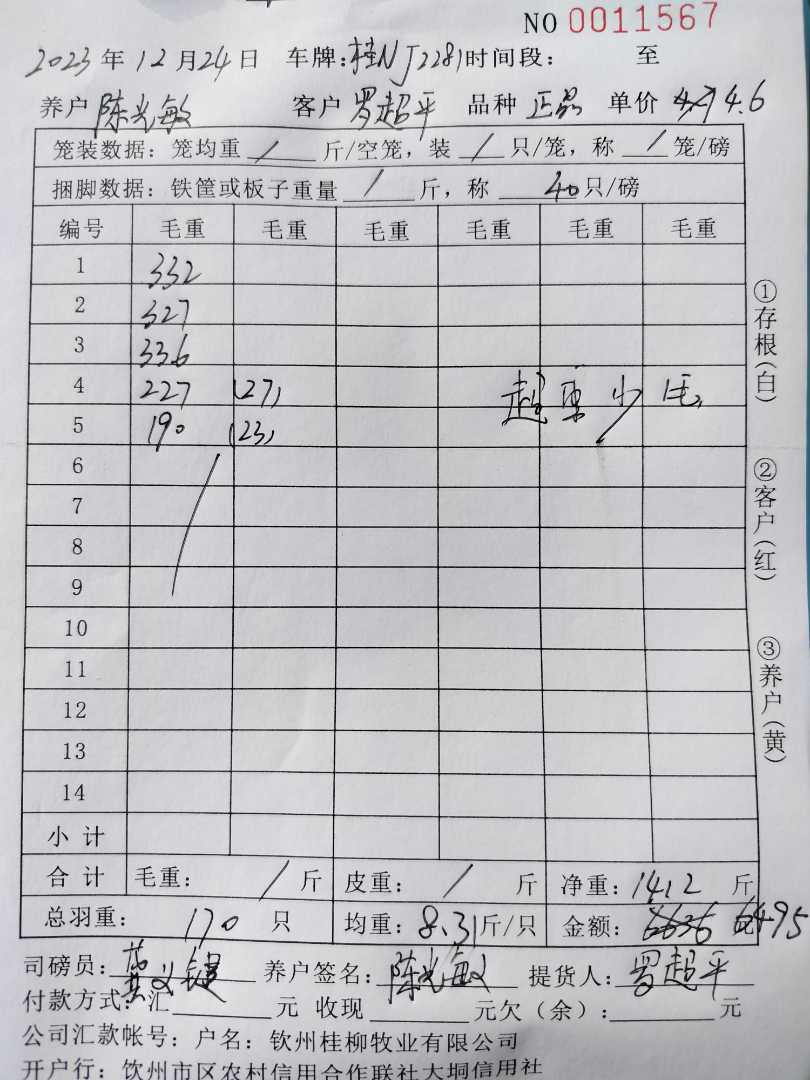 NO 0011567
2023年12月24日 车牌:桂NJ2281时间段: 至
养户 陈光敏 客户 罗超平 品种 正品 单价 4.7 4.6
笼装数据: 笼均重 / 斤/空笼, 装 / 只/笼, 称 / 笼/磅
捆脚数据: 铁筐或板子重量 / 斤, 称 40只/磅
编号 毛重 毛重 毛重 毛重 毛重 毛重
1 332
2 327
3 336
4 227 (27)
5 190 (23)
超重少毛
6
7
8
9
10
11
12
13
14
小计
合计 毛重: / 斤 皮重: / 斤 净重: 1412 斤
总羽重: 170 只 均重: 8.31斤/只 金额: 6636 6495
司磅员: 黄义键 养户签名: 陈光敏 提货人: 罗超平
付款方式: 汇 元 收现 元欠(余): 元
公司汇款帐号: 户名: 钦州桂柳牧业有限公司
开户行: 钦州市区农村信用合作联社大垌信用社
①存根(白)
②客户(红)
③养户(黄)